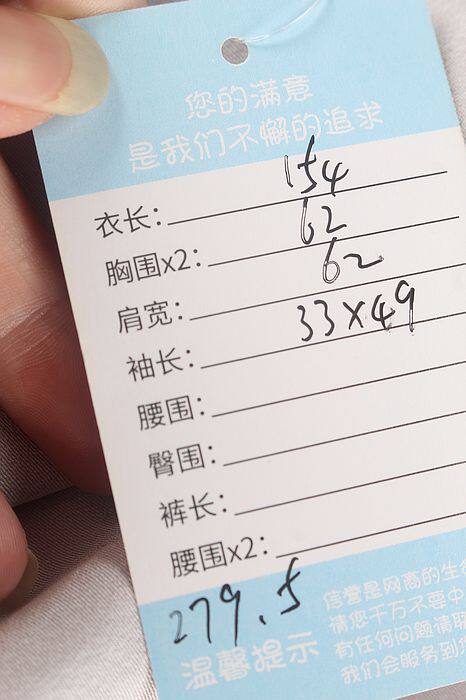 您的满意
是我们不懈的追求
衣长: 154
胸围x2: 62
肩宽: 62
袖长: 33x49
腰围:
臀围:
裤长:
腰围x2:
279.5
温馨提示
信誉是网商的生
请您千万不要中
有任何问题请联
我们会服务到